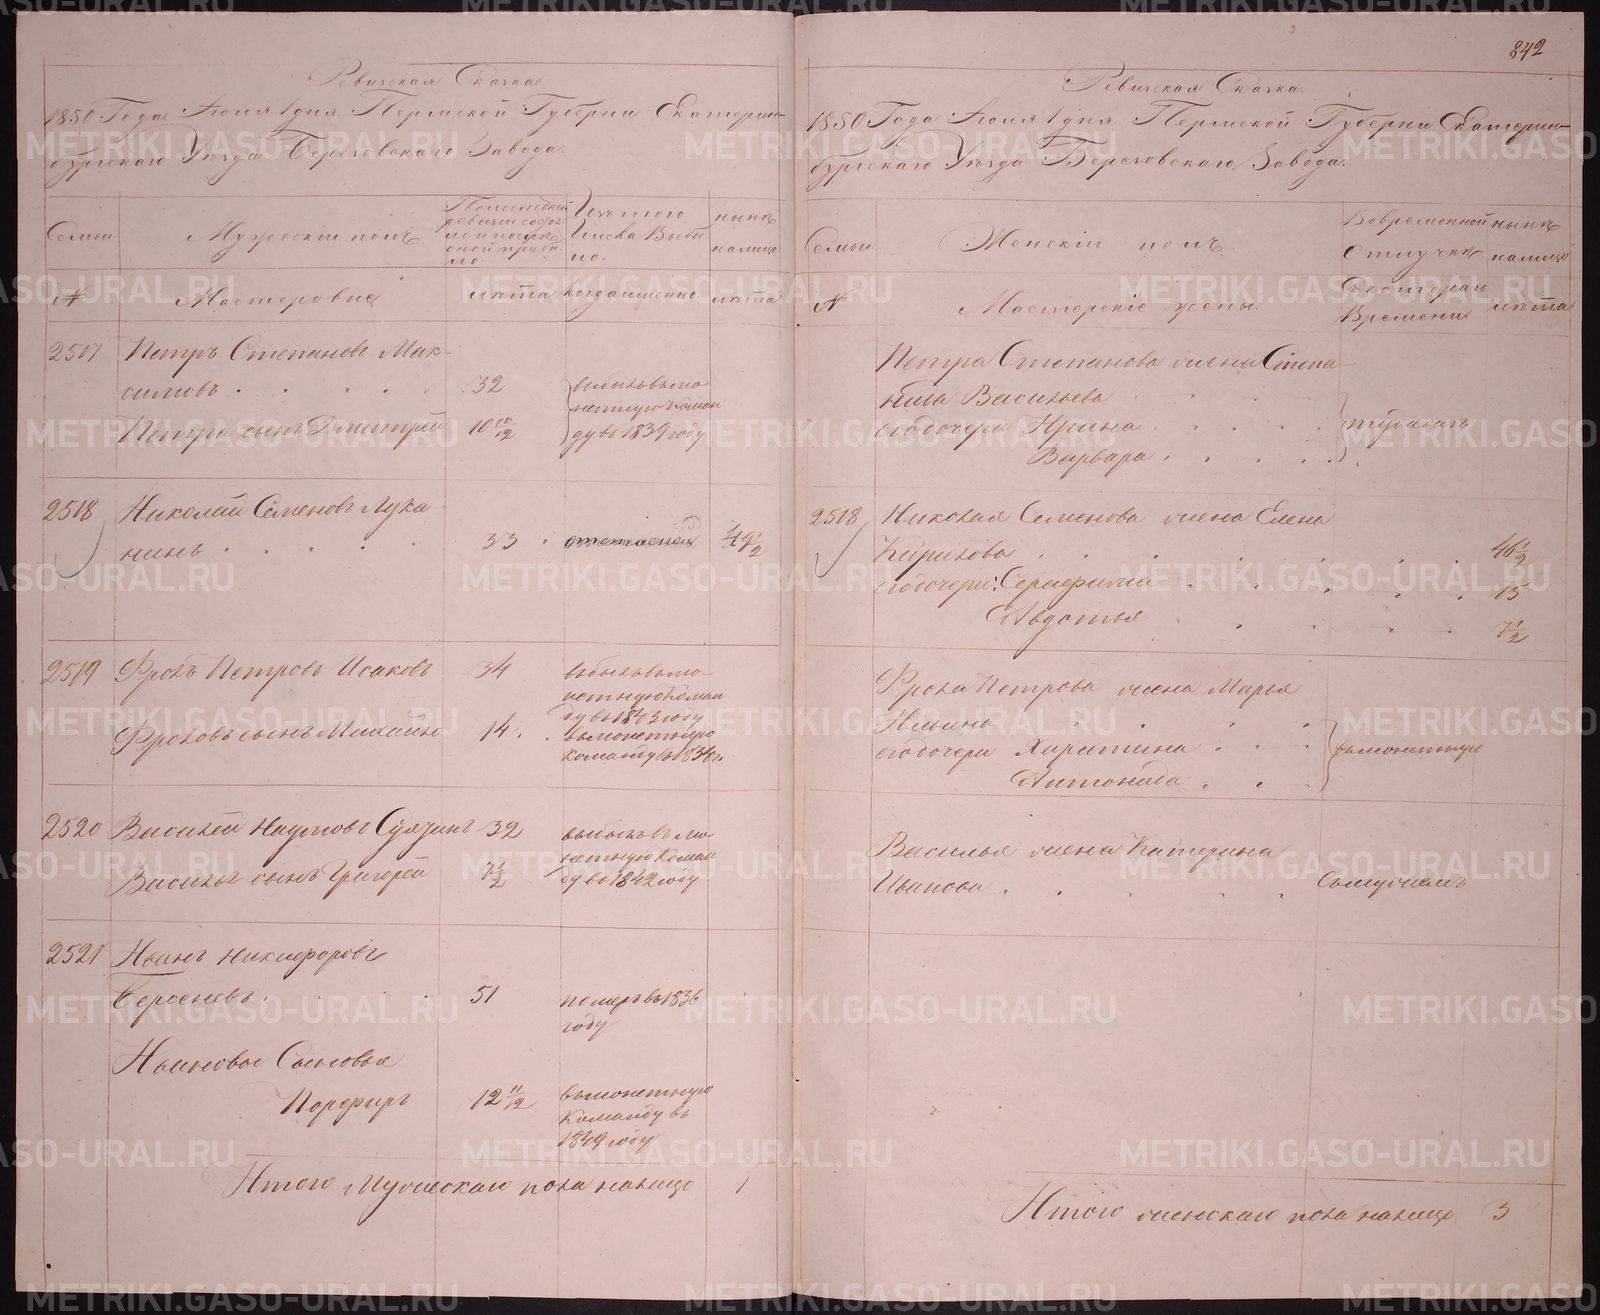 Ревизская Сказка
1850 Года Июля 1 дня Пермской Губернии Екатерин-
бургского Уезда Березовского Завода.
Семьи
Мужеский полъ
Последней
ревизии состоя
ло и после
оной прибы
ло.
Изъ того
числа выбы
ло.
ныне
налицо
№
Мастеровые
лѣта
когда именно
лѣта
2517
Петръ Степановъ Мак-
симовъ
32
выбылъ въ мо
нетную коман
ду въ 1839 году
Петра сынъ Дмитрей
10 10/12
2518
Николай Семеновъ Лука
нинъ
33
49 1/2
2519
Фролъ Петровъ Исаковъ
34
выбылъ въ мо
нетную Коман
ду въ 1843 году
Фроловъ сынъ Михайло
14
въ монетную
команду въ 1834 г.
2520
Василей Наумовъ
32
выбылъ въ мо
нетную Коман
ду въ 1842 году
Василья сынъ Григорей
7 1/2
2521
Иванъ Никифоровъ
Берсеневъ
51
померъ въ 1836
году
Ивановы Сыновья
Порфиръ
12 11/12
въ монетную
Команду въ
1849 году
Итого Мужескаго пола налицо 1
842
Ревизская Сказка
1850 Года Июля 1 дня Пермской Губернии Екатерин-
бургского Уезда Березовского Завода.
Семьи
Женскій полъ
Во временной
отлучке
ныне
налицо
№
Мастерскіе жены
Съ котораго
Времени
лѣта
Петра Степанова жена Степа-
нида Васильева
его дочери Ирина
Варвара
2518
Николая Семенова жена Елена
Кирилова
46 1/2
его дочери: Серафима
15
Авдотья
7 1/2
Фрола Петрова жена Марья
Ильина
его дочери Харитина
въ монетную
Антонида
Василья жена Катерина
Иванова
съ мужемъ
Итого женскаго пола налицо 3
METRIKI.GASO-URAL.RU